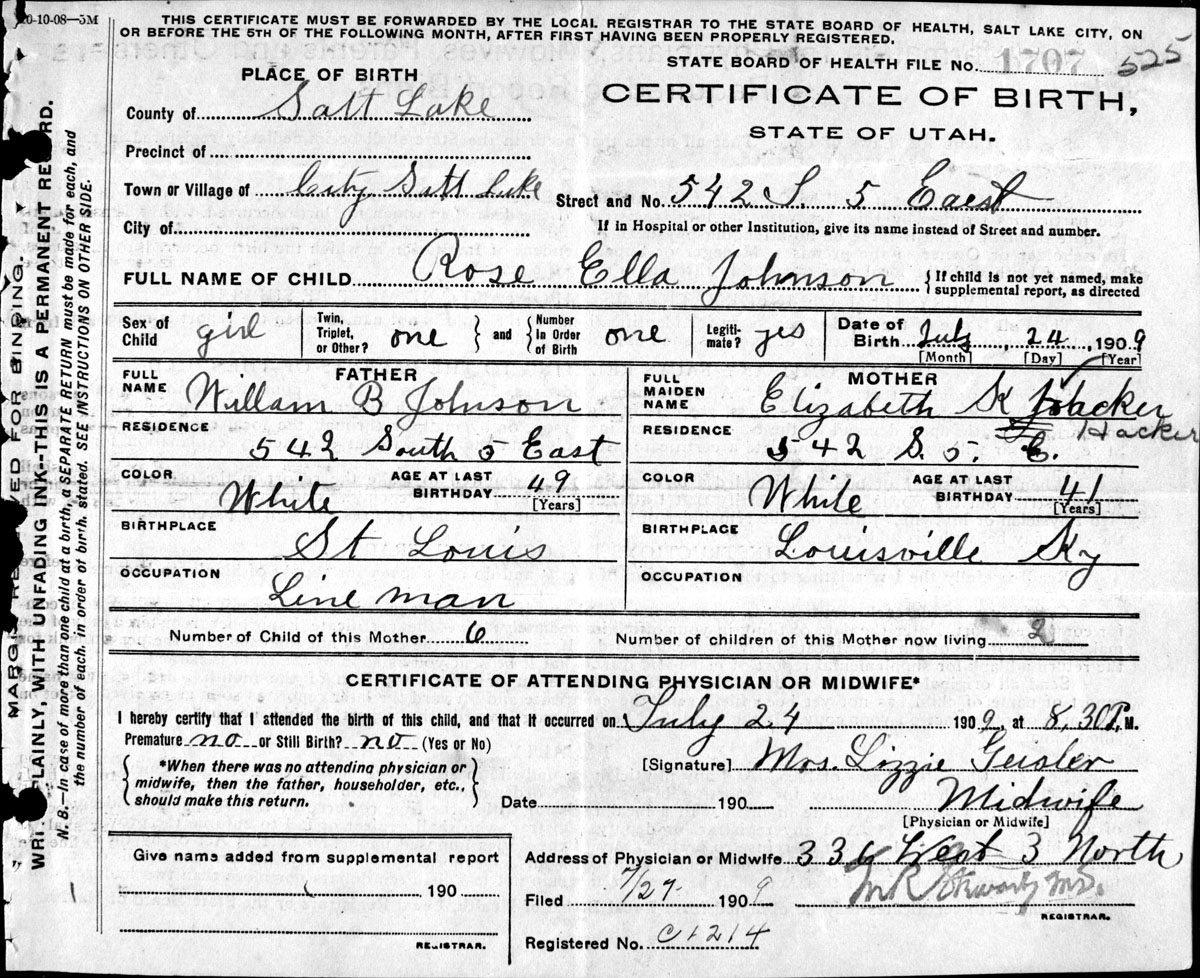 10-10-08—5M
THIS CERTIFICATE MUST BE FORWARDED BY THE LOCAL REGISTRAR TO THE STATE BOARD OF HEALTH, SALT LAKE CITY, ON
OR BEFORE THE 5TH OF THE FOLLOWING MONTH, AFTER FIRST HAVING BEEN PROPERLY REGISTERED.
STATE BOARD OF HEALTH FILE No. 1707 525
PLACE OF BIRTH
CERTIFICATE OF BIRTH,
STATE OF UTAH.
County of Salt Lake
Precinct of
Town or Village of City Salt Lake
Street and No. 542 S. 5 East
City of
If in Hospital or other Institution, give its name instead of Street and number.
FULL NAME OF CHILD Rose Ella Johnson {If child is not yet named, make
supplemental report, as directed
Sex of Child girl
Twin, Triplet, or Other? one } and { Number in Order of Birth one
Legiti-mate? yes
Date of Birth July, 24, 1909
[Month] [Day] [Year]
FATHER
FULL NAME Willam B Johnson
RESIDENCE
542 South 5 East
COLOR White AGE AT LAST BIRTHDAY 49
[Years]
BIRTHPLACE St Louis
OCCUPATION
Line man
MOTHER
FULL MAIDEN NAME Elizabeth K Hacker
Hacker
RESIDENCE
542 S. 5. E.
COLOR White AGE AT LAST BIRTHDAY 41
[Years]
BIRTHPLACE Louisville Ky
OCCUPATION
Number of Child of this Mother 6 Number of children of this Mother now living 2
CERTIFICATE OF ATTENDING PHYSICIAN OR MIDWIFE*
I hereby certify that I attended the birth of this child, and that it occurred on July 24 1909, at 8,30 P.M.
Premature no or Still Birth? no (Yes or No)
{ *When there was no attending physician or
midwife, then the father, householder, etc.,
should make this return. }
[Signature] Mrs. Lizzie Geisler
Date 190 Midwife
[Physician or Midwife]
Give name added from supplemental report
190
REGISTRAR.
Address of Physician or Midwife 336 West 3 North
Filed 7/27 1909
REGISTRAR.
Registered No. C1214
MARGIN RESERVED FOR BINDING.
WRITE PLAINLY, WITH UNFADING INK—THIS IS A PERMANENT RECORD.
N. B.—In case of more than one child at a birth, a SEPARATE RETURN must be made for each, and
the number of each, in order of birth, stated. SEE INSTRUCTIONS ON OTHER SIDE.